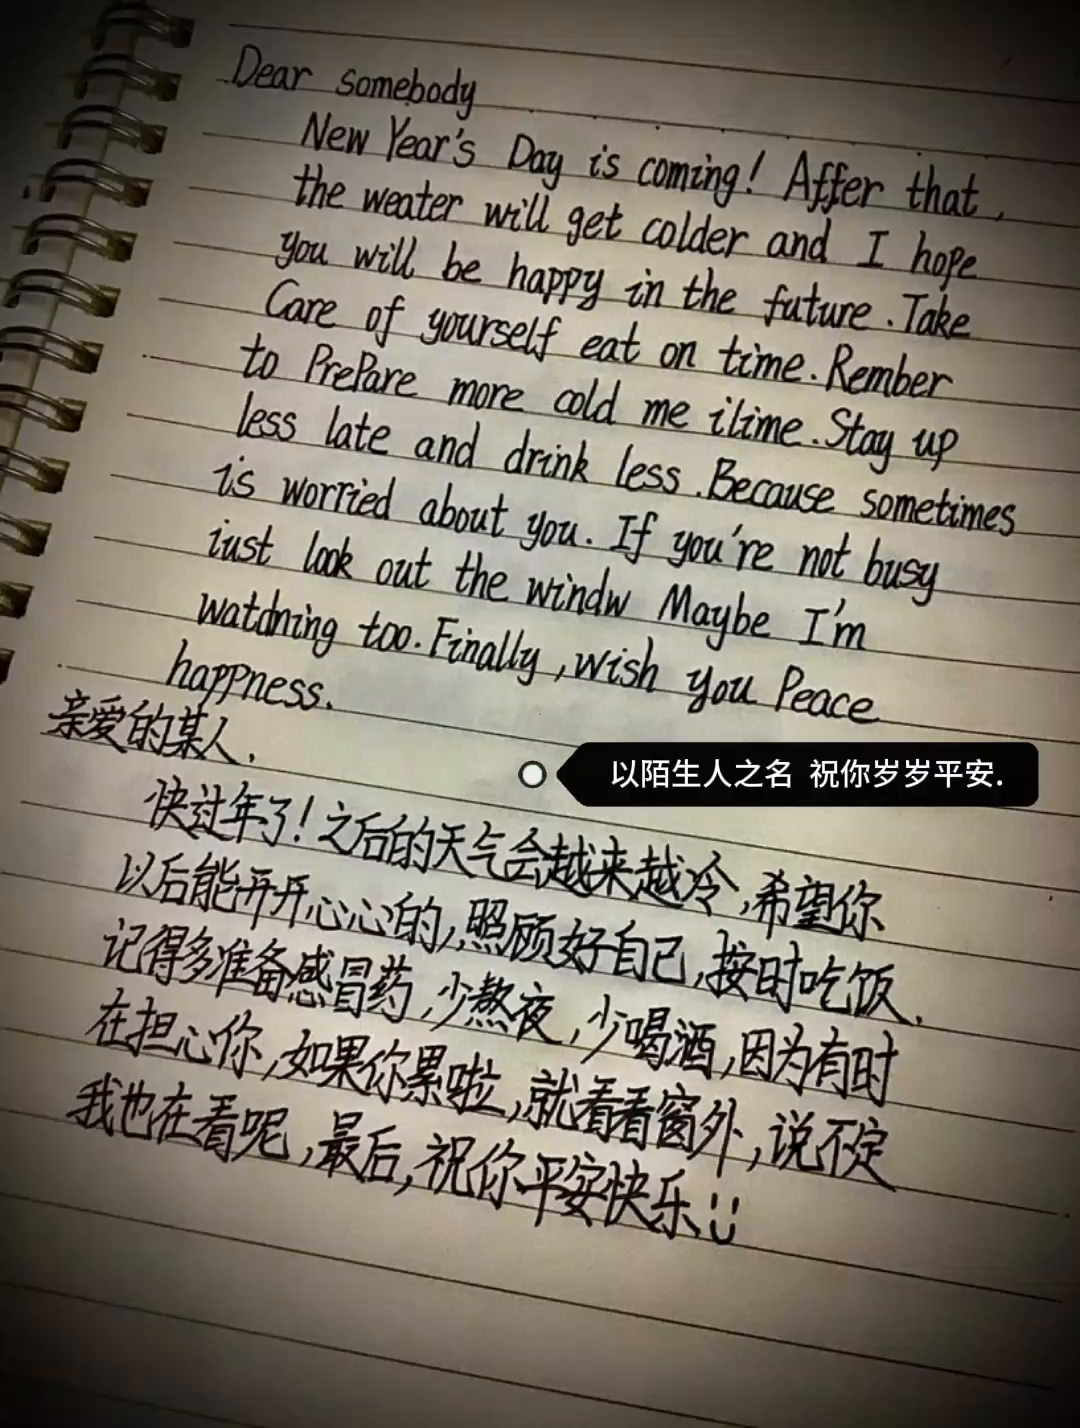 Dear somebody
New Year's Day is coming! Affer that,
the weater will get colder and I hope
you will be happy in the future.Take
Care of yourself eat on time.Rember
to PrePare more cold me ilime.Stay up
less late and drink less.Because sometimes
is worried about you. If you're not busy
iust look out the windw Maybe I'm
watdning too.Finally,wish you Peace
happness.
亲爱的某人.
以陌生人之名 祝你岁岁平安.
快过年了!之后的天气会越来越冷,希望你
以后能开开心心的,照顾好自己,按时吃饭.
记得多准备感冒药,少熬夜,少喝酒,因为有时
在担心你,如果你累啦,就看看窗外,说不定
我也在看呢,最后,祝你平安快乐